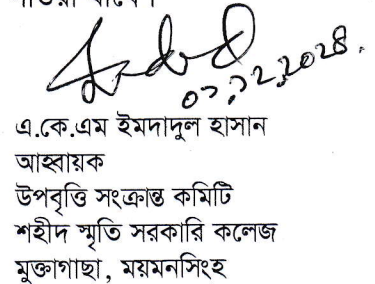 ০১.১২.২০২৪.
এ.কে.এম ইমদাদুল হাসান
আহ্বায়ক
উপবৃত্তি সংক্রান্ত কমিটি
শহীদ স্মৃতি সরকারি কলেজ
মুক্তাগাছা, ময়মনসিংহ